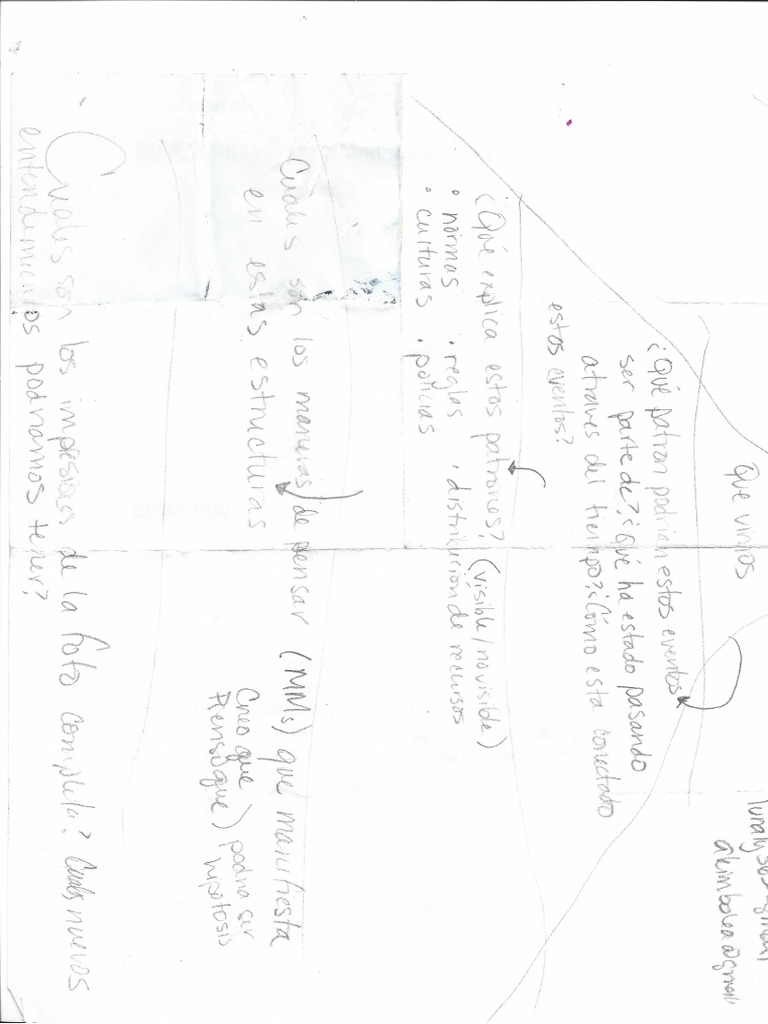 Que vimos
¿Qué patron podrian estos eventos
ser parte de? ¿Qué ha estado pasando
atraves del tiempo? ¿Cómo esta conectado
estos eventos?
¿Qué explica estos patrones? (visible/no visible)
• normas • reglas • distribución de recursos
• culturas • policias
Cuales són los maneras de pensar (MMs) que manifiesta
en estas estructuras
Creo que
Piensoque) podria ser
hipotosis
Cuales son los impresiones de la foto completa? Cuales nuevos
entendimientos podriamos tener?